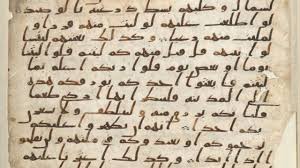 لشمال وكلبهم بسط ذراعيه بالوصيد
لو اطلعت عليهم لوليت منهم فرارا و
لملئت منهم رعبا وكذلك بعثنهم ليتسا
لوا بينهم قل قائل منهم كم لبثتم قلوا لبثنا
يوما او بعض يوم قلوا ربكم اعلم بما
لبثتم فابعثوا احدكم بورقكم هذه
الى المدينة فلينظر ايها ازكى طعما
فلياتكم برزق منه وليتلطف ولا يشعرن
بكم احدا انهم ان يظهروا عليكم
يرجموكم او يعيدوكم في ملتهم ولن تفلحوا
اذا ابدا وكذلك اعثرنا عليهم